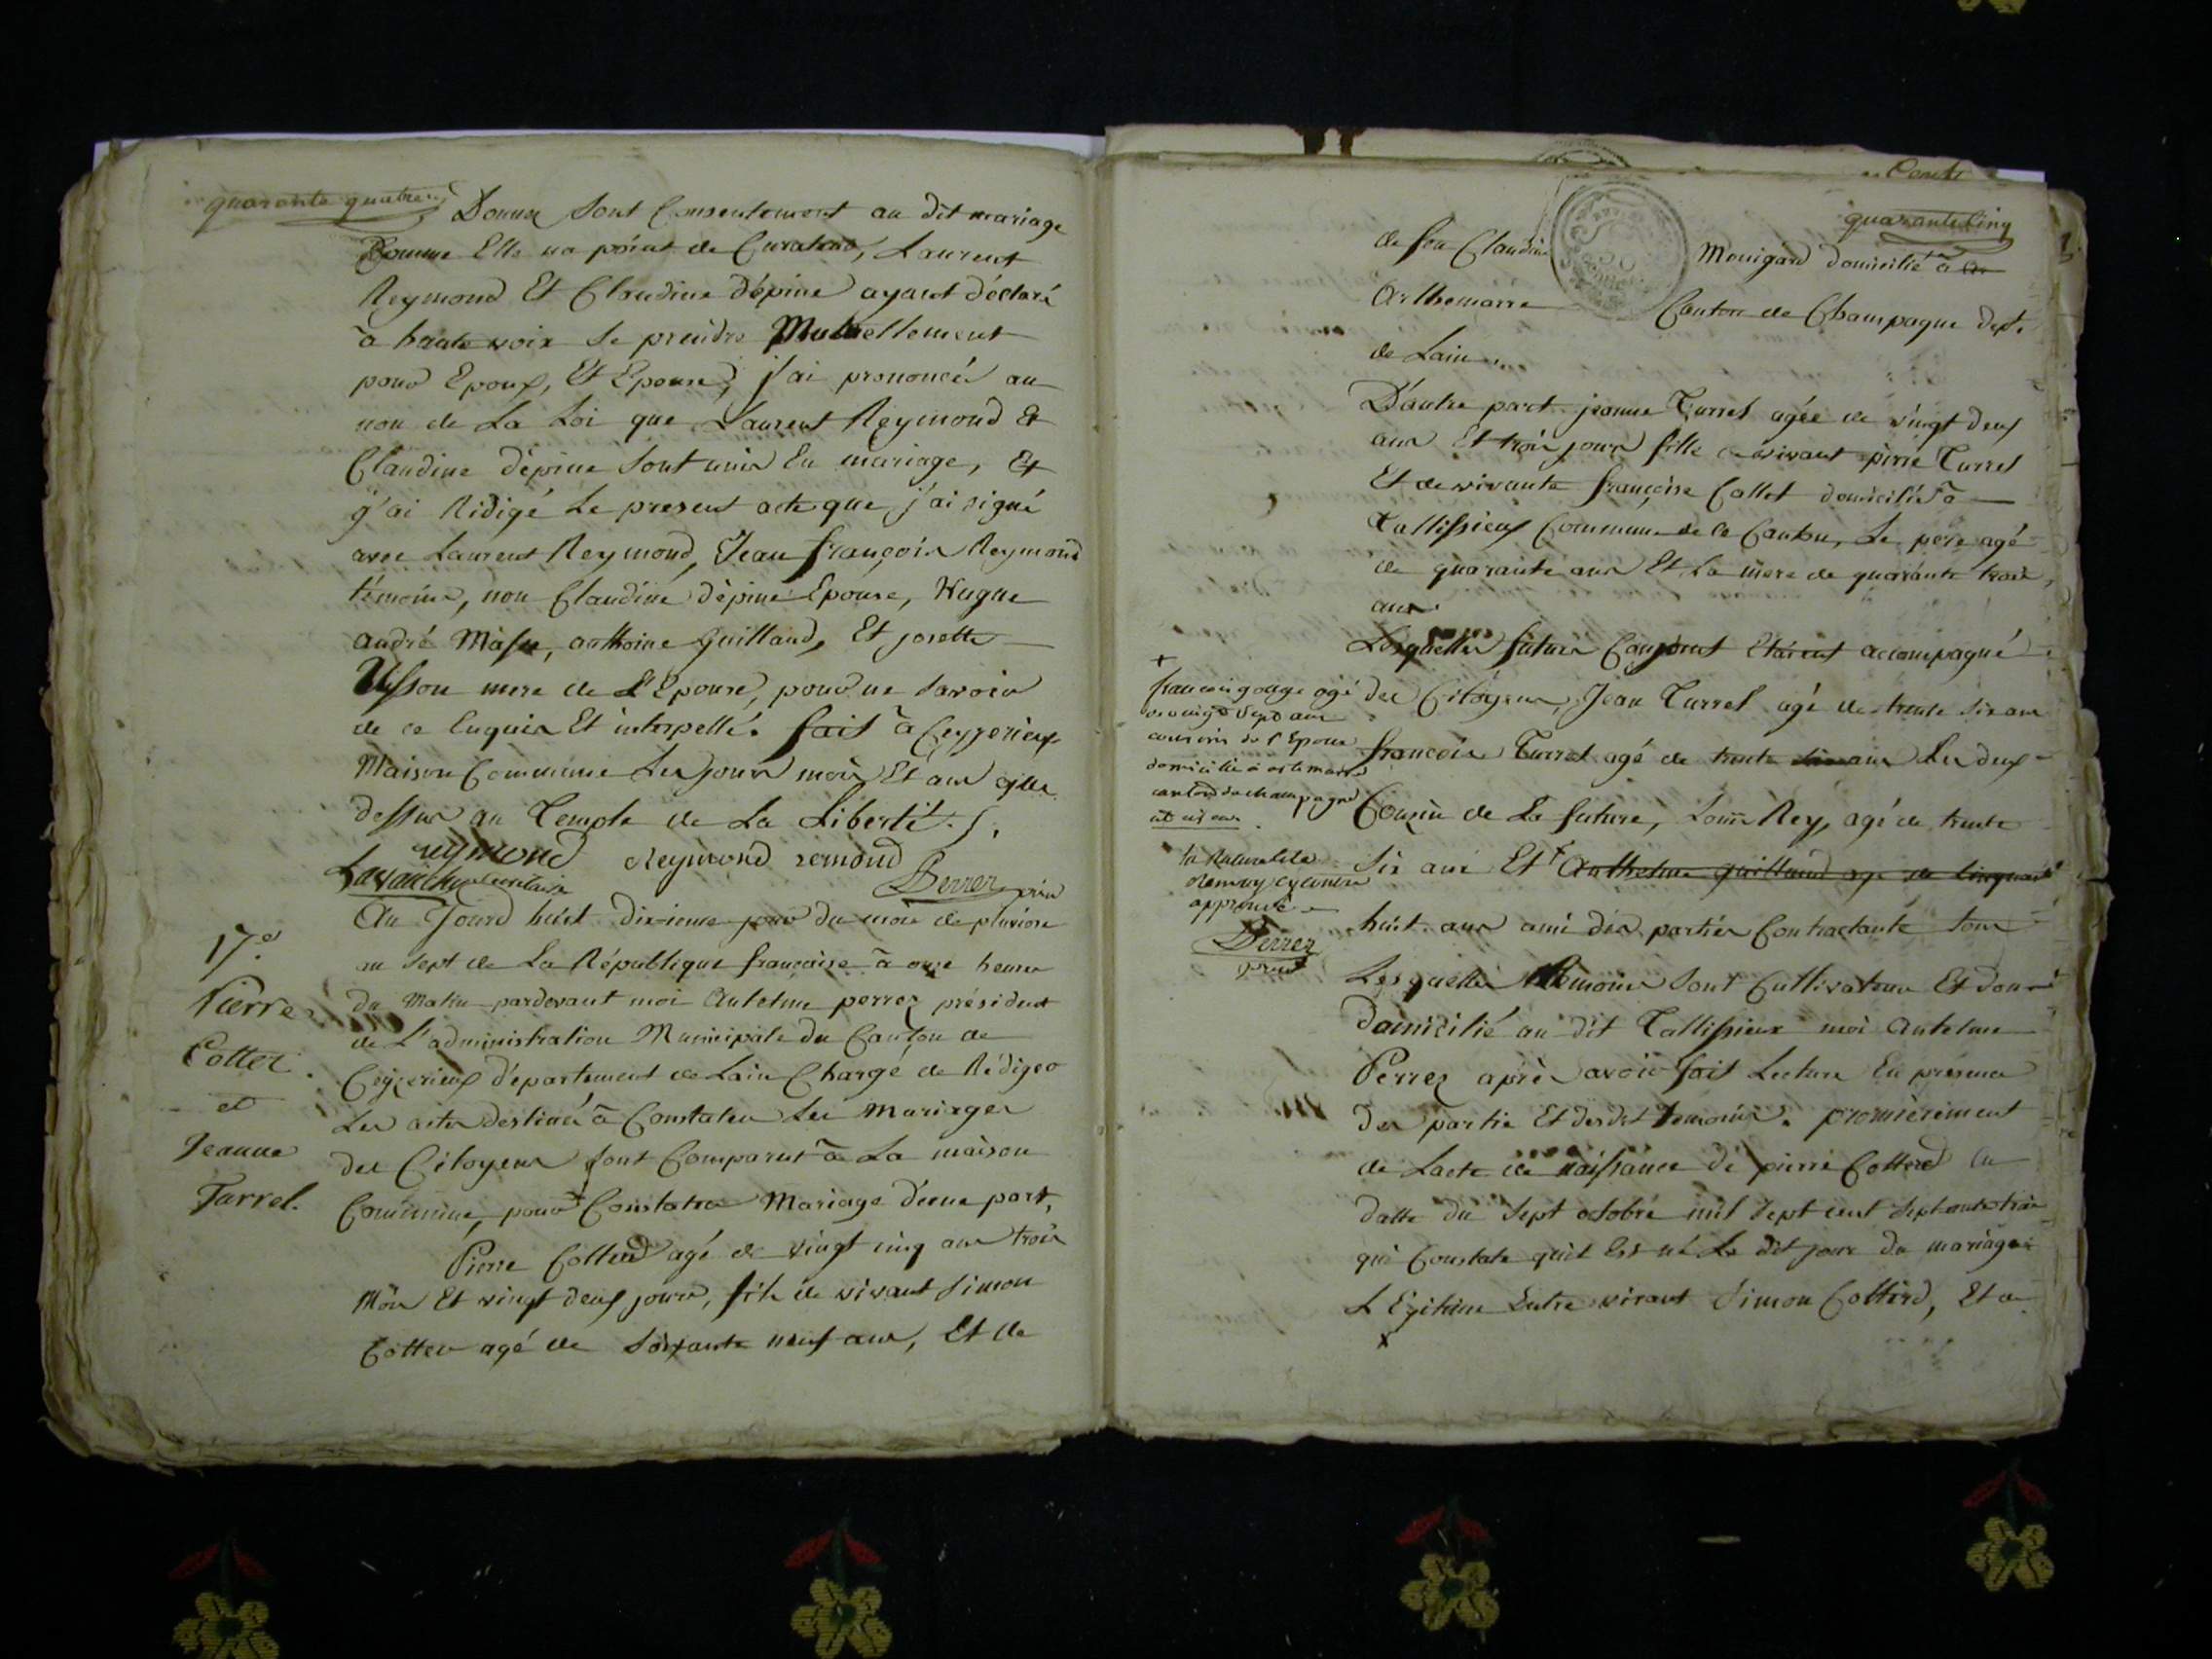 quarante quatre
Donner sont Consentement au dit mariage
Comme Elle na point de Curateur, Laurent
Reymond Et Claudine d'épine ayant déclaré
à haute voix se prendre Mutuellement
pour Epoux, Et Epouse, j'ai prononcée au
non de La Loi que Laurent Reymond Et
Claudine d'épine sont unis En mariage, Et
j'ai Rédigé Le present acte que j'ai signé
avec Laurent Reymond, Jean françois Reymond
témoins, non Claudine d'épine Epouse, Hugue
andré Masse, anthoine Guilland, Et josette
Usson mere de L'Epouse, pour ne savoir
de ce Enquis Et interpellé. fait à Ceyzerieux
Maison Commune Les jour mois Et an que
dessus au Temple de La Liberté.
reymond Reymond remond
Lavanchy secretaire Perrez
17.e
Pierre
Cotter.
et
Jeanne
Turrel.
Au Jourd huit dixieme jour du mois de pluviose
an sept de La République française à onze heures
du Matin pardevant moi Antelme perrez président
de L'administration Municipale du Canton de
Ceyzerieux département de Lain Chargé de Rédiger
Les actes destinés à Constater Les Mariages
des Citoyens sont Comparut à La maison
Commune, pour Constater Mariage d'une part,
Pierre Cotterd agé de vingt cinq ans trois
Mois Et vingt deux jours, fils de vivant Simon
Cotter agé de soixante neuf ans, Et de
quarante Cinq
de feu Claudine Monigard domicilié à
Arthemarre Canton de Champagne dept.
de Lain
D'autre part jeanne Turrel agée de vingt deux
ans Et trois jours fille de vivant pierre Turrel
Et de vivante françoise Collet domiciliés à
Tallissieux Commune de ce Canton, Le pere agé
de quarante ans Et La mere de quarante trois
ans.
Lesquelles futurs Conjoint Etaient accompagné
des Citoyens, Jean Turrel agé de trente six ans
françois Turrel agé de trente ans Les deux
Cousin de La future, Rey, agé de trente
six ans Et Anthelme Guilland agé de Cinquante
huit ans ami des parties Contractante tous
Lesquelles témoins sont Cultivateurs Et
domicilié au dit Tallissieux moi Antelme
Perrez après avoir fait Lecture En présence
des partie Et desdit temoins. premièrement
de Lacte de naissance de pierre Cotterd En
datte du sept octobre mil sept cent septante trois
qui Constate quil Est né Le dit jour du mariage
L Egitime Entre vivant Simon Cotterd, Et
+
francois agé
de vingt sept ans
cousins de l'Epoux
domicilié à artemarre
canton de champagne
la Rature
approuvé
Perrez